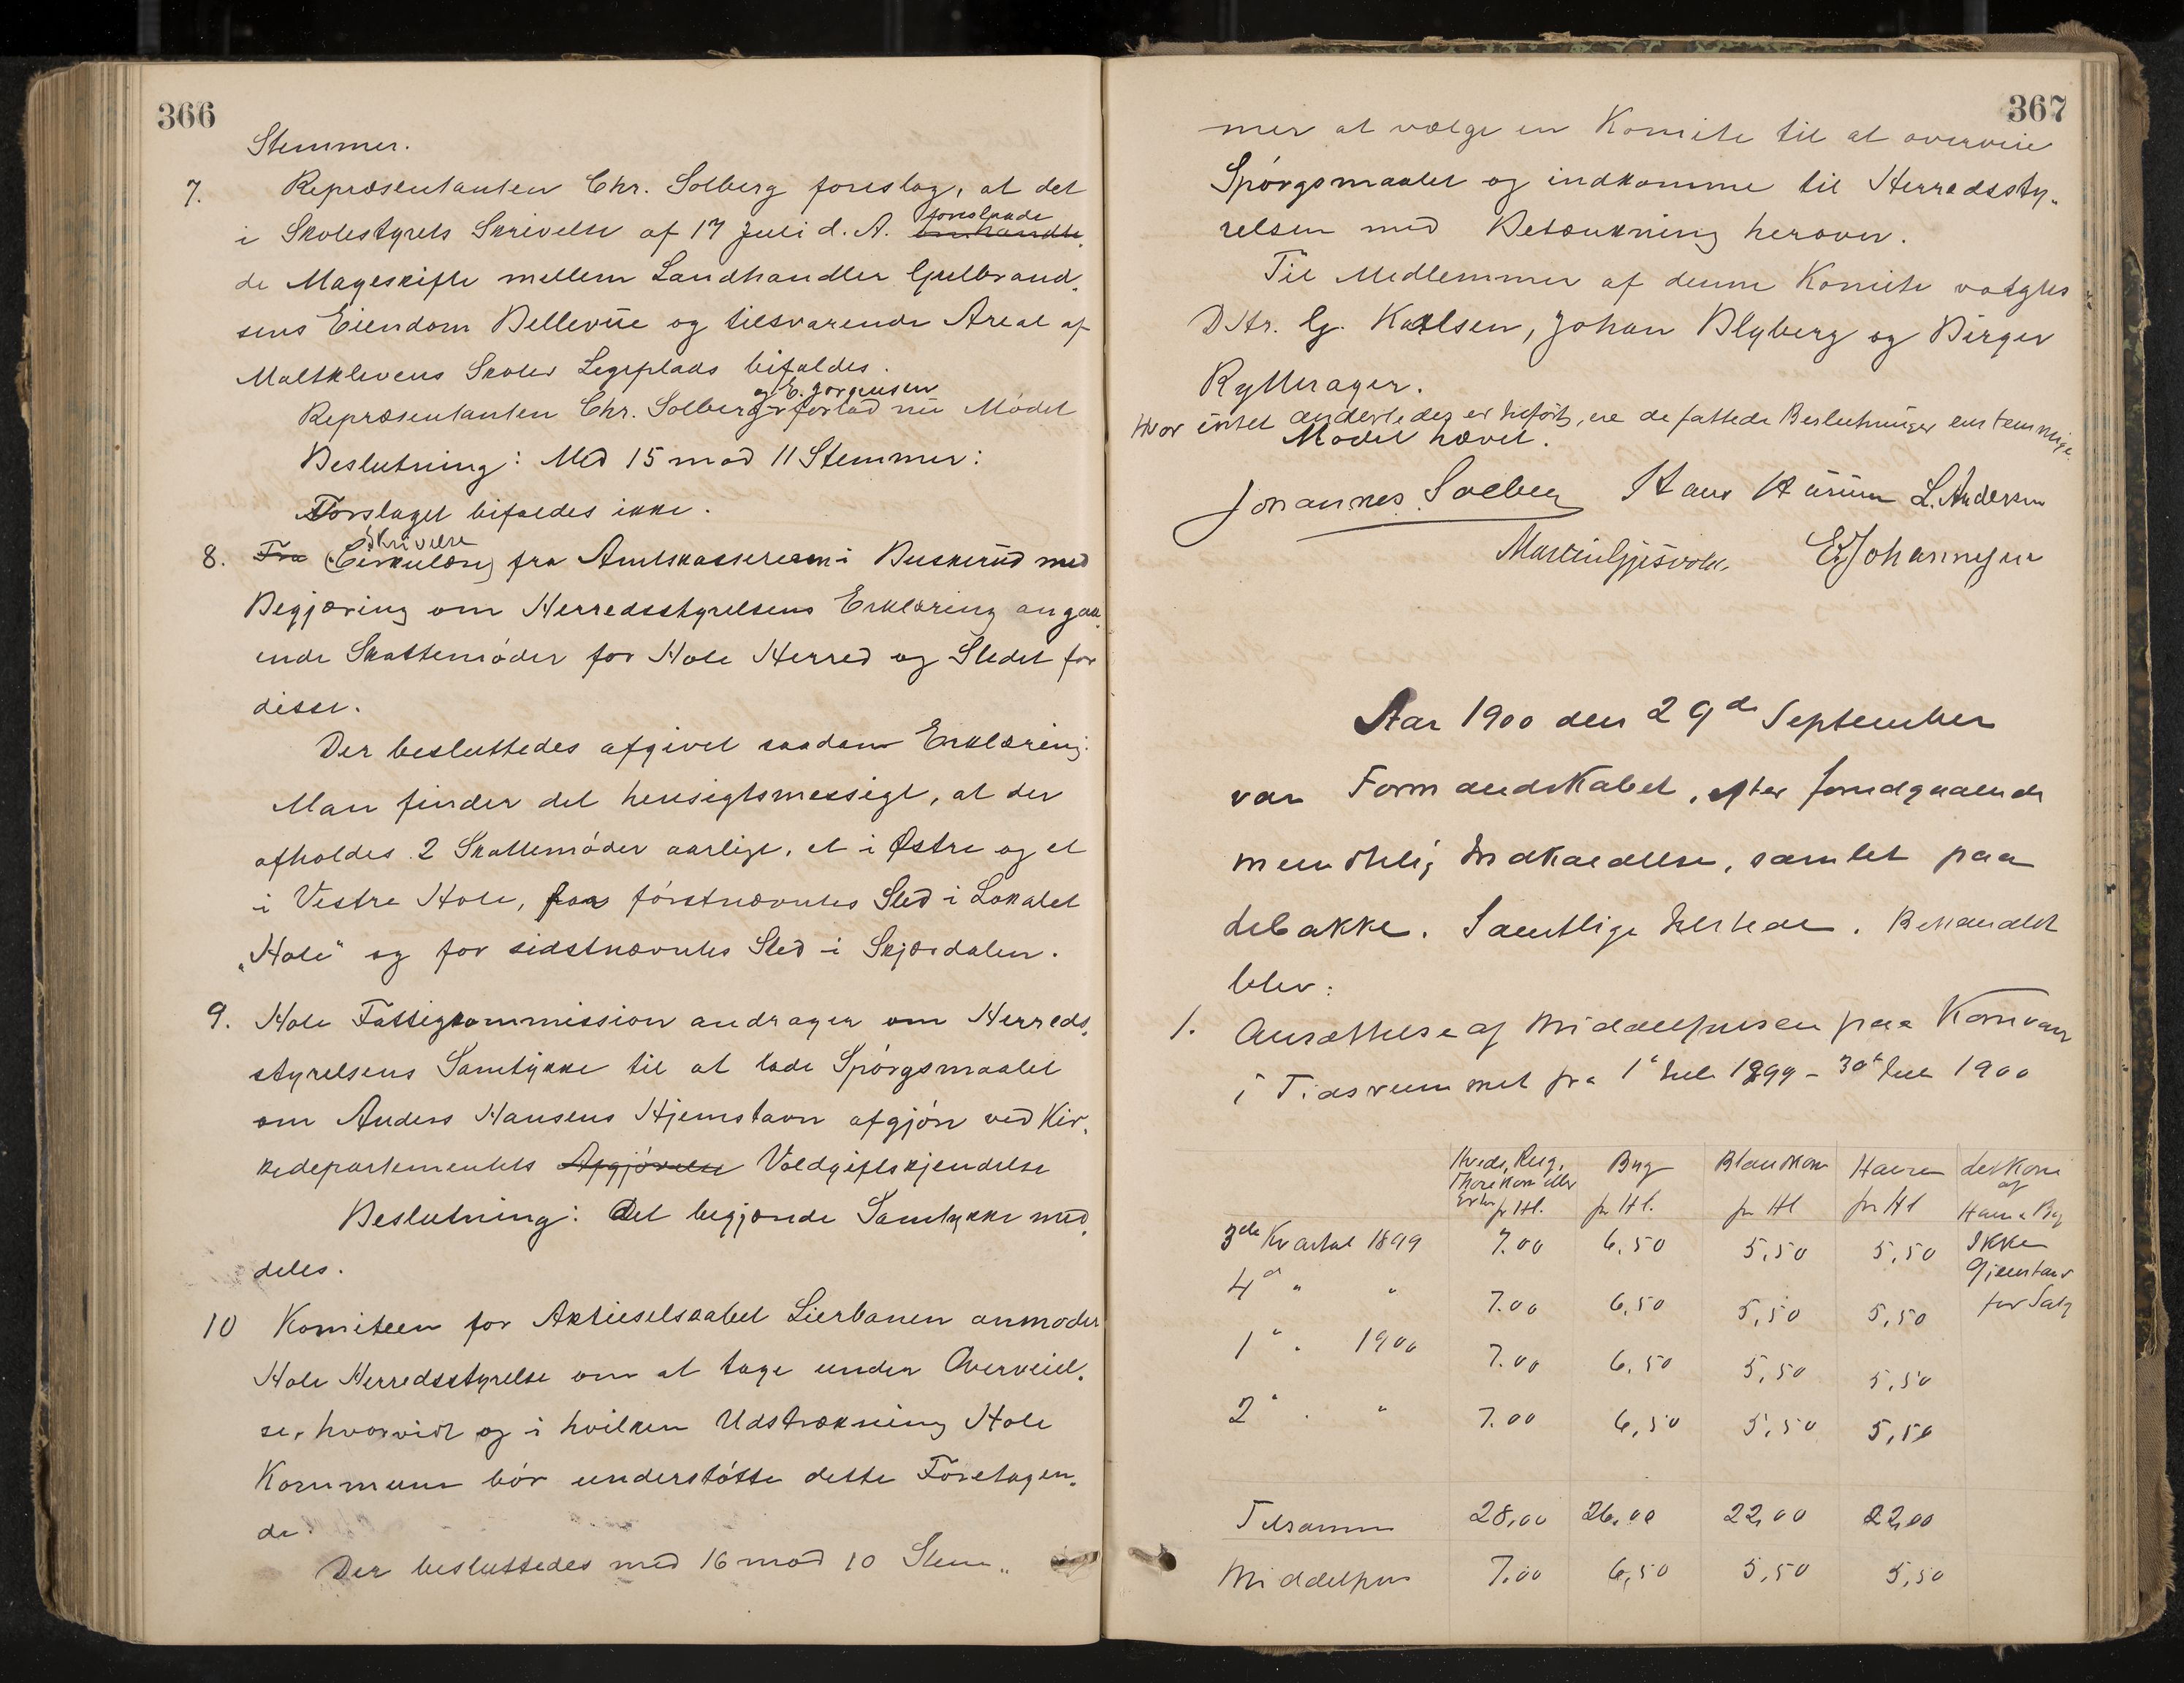 366
Stemmer.
7. Repræsentanten Chr. Solberg foreslog, at det
i Skolestyrets Skrivelse af 17 Juli d. A. foreslaade omhandle
de Mageskifte mellem Landhandler Gulbrand.
sens Eiendom Bellevue og tilsvarende Areal af
Maltklevens Skoles Legeplads bifaldes.
Repræsentanten Chr. Solberg og E. Jørgensen forlod nu Mödet
Beslutning: Med 15 mod 11 Stemmer:
Forslaget bifaldes ikke.
8. Fra (Cirkulære) Skrivelse fra Amtskassereren i Buskerud med
Begjæring om Herredsstyrelsens Erklæring angaa.
ende Skattemöder for Hole Herred og Stedet for
disse.
Der besluttedes afgivet saadan Erklæring:
Man finder det hensigtsmessigt, at der
afholdes 2 Skattemöder aarligt, et i Østre og et
i Vestre Hole, for förstnævntes Sted i Lokalet
„Hole" og for sidstnævntes Sted i Skjærdalen.
9. Hole Fattigkommission andrager om Herreds.
styrelsens Samtykke til at lade Spörgsmaalet
om Anders Hansens Hjemstavn afgjöre ved Kir.
kedepartementets Afgjörelse Voldgiftskjendelse
Beslutning: Det begjærede Samtykke med.
deles.
10 Komiteen for Aktieselskabet Lierbanen anmoder
Hole Herredsstyrelse om at tage under Overveiel.
se, hvorvidt og i hvilken Udstrækning Hole
Kommune bör understötte dette Foretagen.
de.
Der besluttedes med 16 mod 10 Stem„
367
mer at vælge en Komite til at overveie
Spörgsmaalet og indkomme til Herredssty„
relsen med Betænkning herover.
Til Medlemmer af denne Komite valgtes
DHr. G. Karlsen, Johan Blyberg og Birger
Rytterager.
Hvor intet anderledes er tilfört, ere de fattede Beslutninger enstemmige.
Mödet hævet.
Johannes Solberg Hans Hurum L. Andersen
Martin Gjesvold. E Johannesen
Aar 1900 den 29de September
var Formandskabet, efter forudgaaende
mundtlig Indkaldelse, samlet paa
Lebakke. Samtlige tilstede. Behandlet
blev:
1. Ansættelse af Middelprisen paa Kornvarer
i Tidsrummet fra 1te Juli 1899 - 30te Juni 1900
Hvede, Rug, Thorekorn eller Erter pr Hl. Byg pr Hl. Blandkorn pr Hl Havre pr Hl
3die Kvartal 1899 7.00 6.50 5,50 5,50 Ikke
Gjenstand
4d " " 7.00 6,50 5,50 5,50 for Salg
1" " 1900 7.00 6,50 5,50 5,50
2" . " 7.00 6,50 5,50 5,50
Tilsammen 28,00 26,00 22,00 22,00
Middelpris 7.00 6,50 5,50 5,50